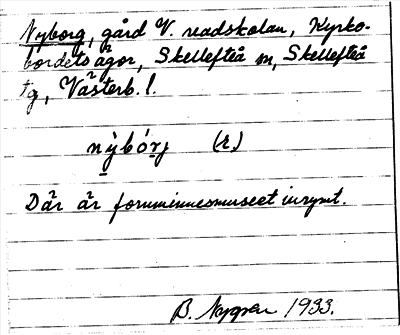 Nyborg, gård V. readskolan, Kyrko-
bordets ägor, Skellefteå sn, Skellefteå
tg, Västerb. l.
nỳbórj (r)
Där är fornminnesmuseet inrymt.
B. Nygren 1933.